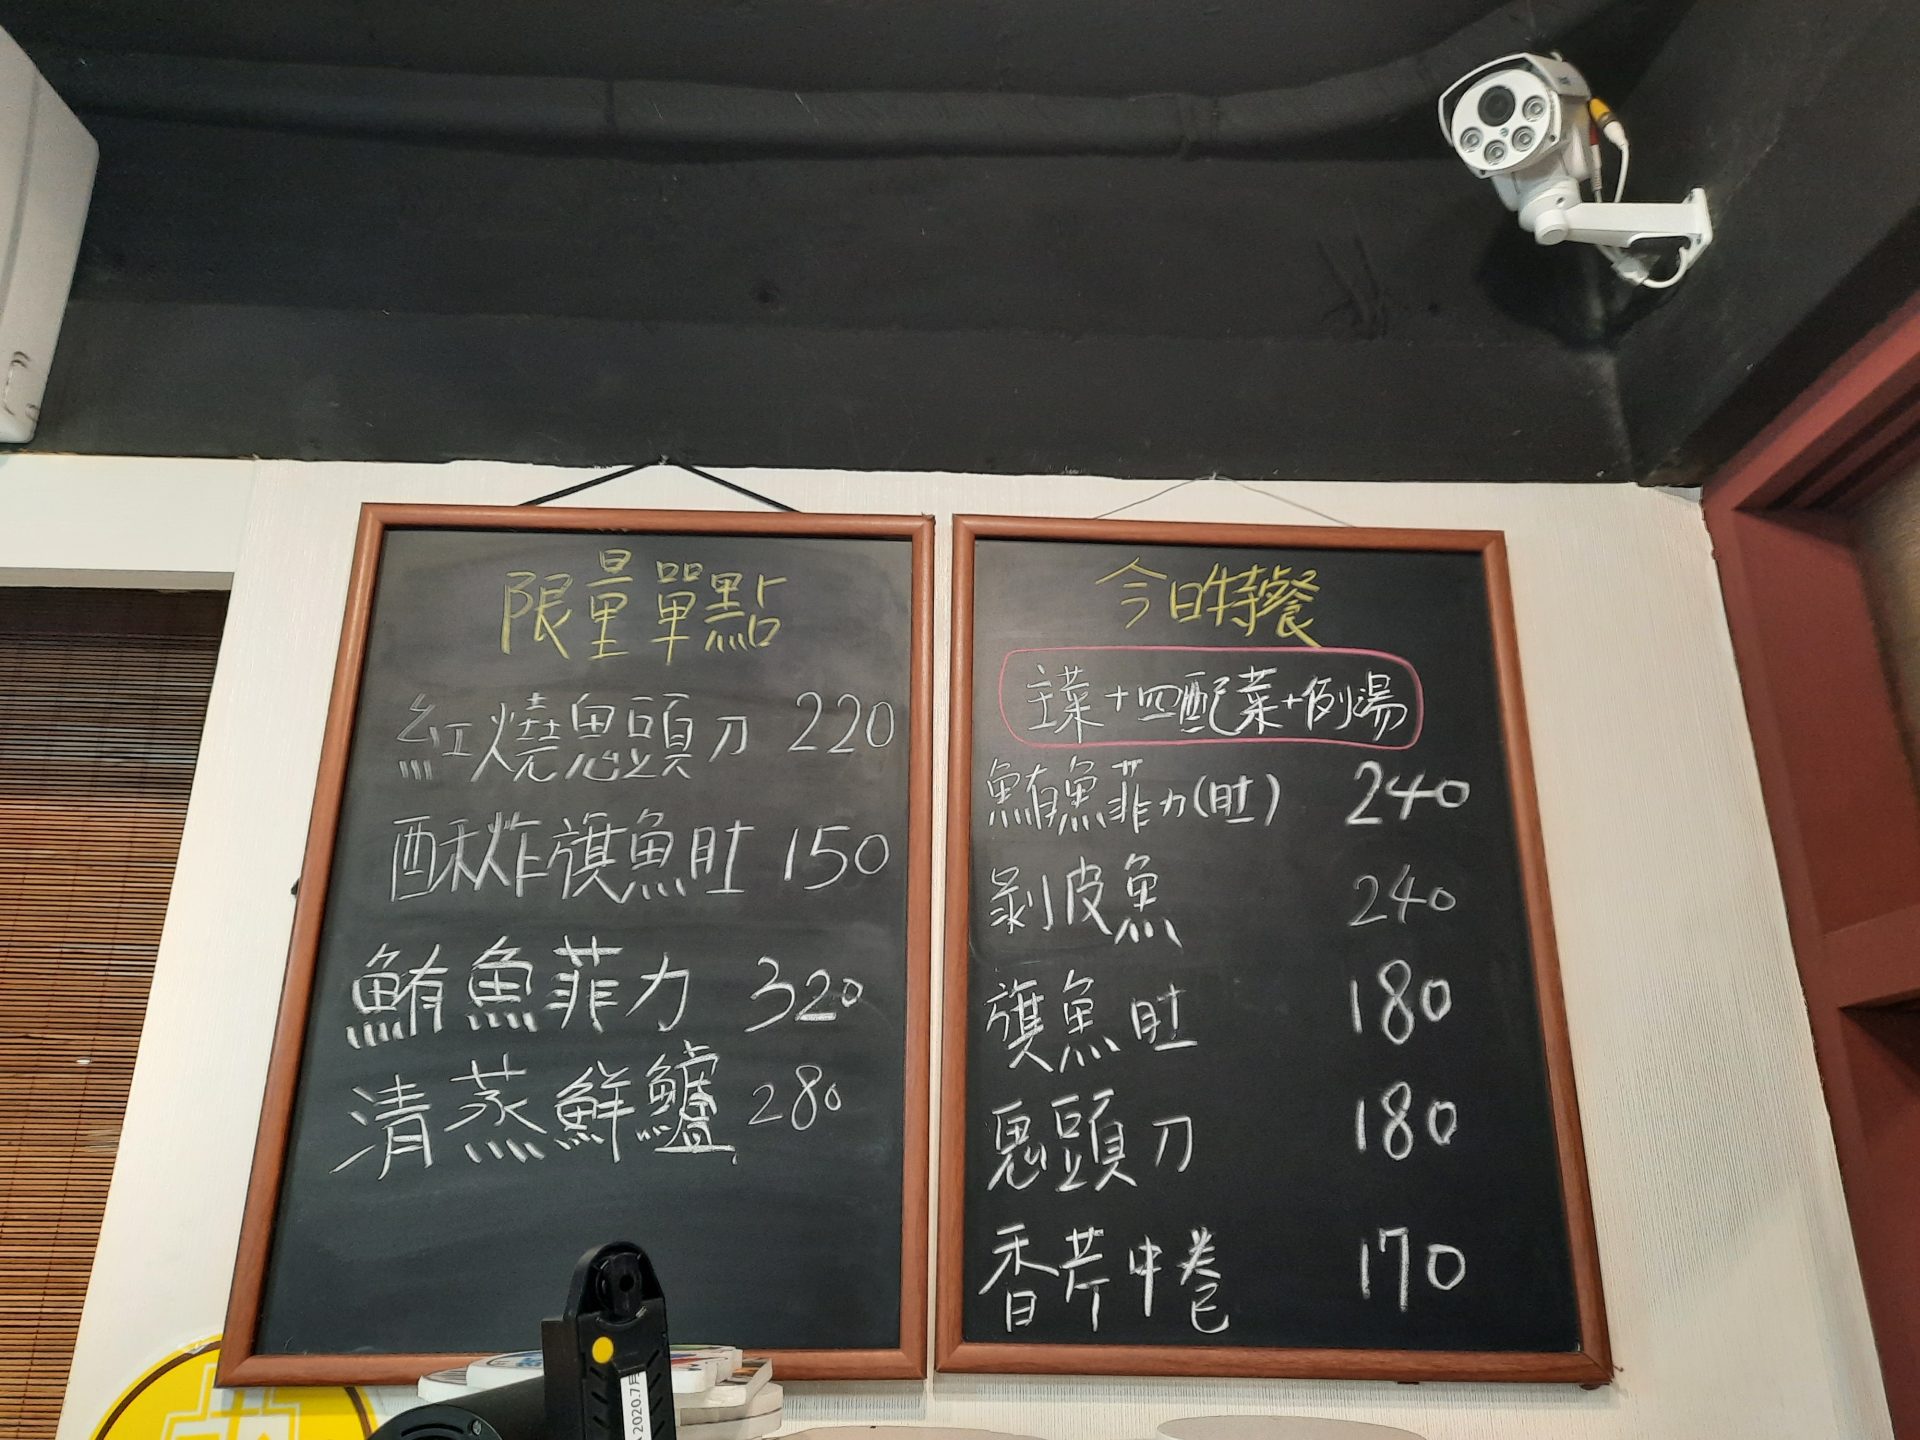 限量單點
紅燒鬼頭刀 220
酥炸旗魚肚 150
鮪魚菲力 320
清蒸鮮鱸 280
今日特餐
主菜+四配菜+例湯
鮪魚菲力(肚) 240
剝皮魚 240
旗魚肚 180
鬼頭刀 180
香芹中卷 170
2020.7月